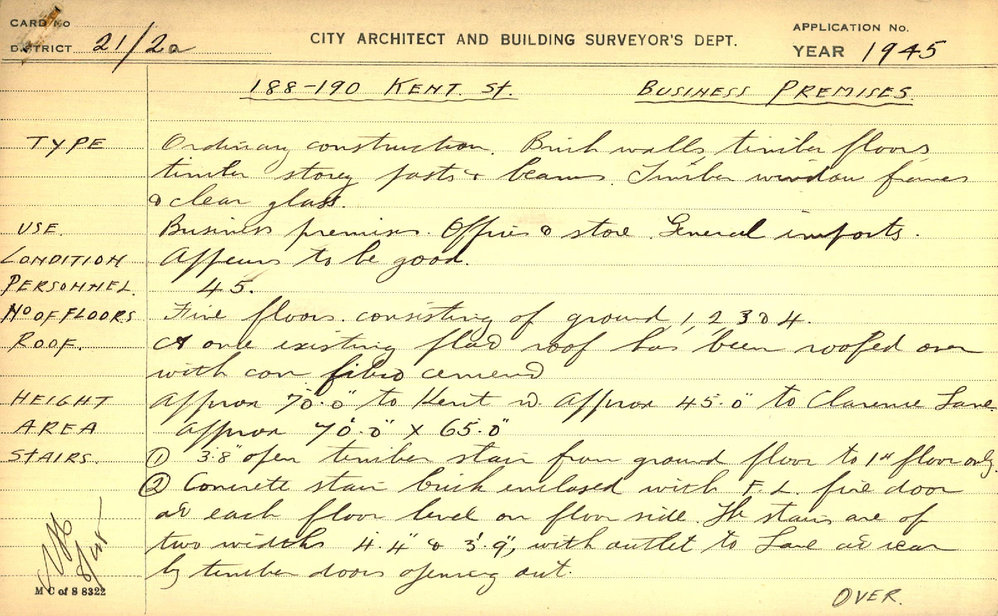 CARD No
DISTRICT 21/2a
CITY ARCHITECT AND BUILDING SURVEYOR'S DEPT.
APPLICATION No.
YEAR 1945
188-190 KENT. St. BUSINESS PREMISES.
TYPE Ordinary construction. Brick walls, timber floors,
timber storey posts & beams. Timber window frames
& clear glass.
USE. Business premises. Offices & store. General imports.
CONDITION Appears to be good.
PERSONNEL. 45.
No OF FLOORS Five floors consisting of ground 1, 2, 3 & 4.
ROOF. A once existing flat roof has been roofed over
with corr fibro cement
HEIGHT Approx 70'.0" to Kent St. Approx 45.0" to Clarence Lane.
AREA approx 70'.0" x 65.0"
STAIRS. ① 3'.8" open timber stair from ground floor to 1st floor only.
② Concrete stair brick enclosed with F.L. fire door
at each floor level on floor side. The stairs are of
two widths 4'.4" & 3'.9", with outlet to Lane at rear
by timber doors opening out.
M C of S 8322
OVER.